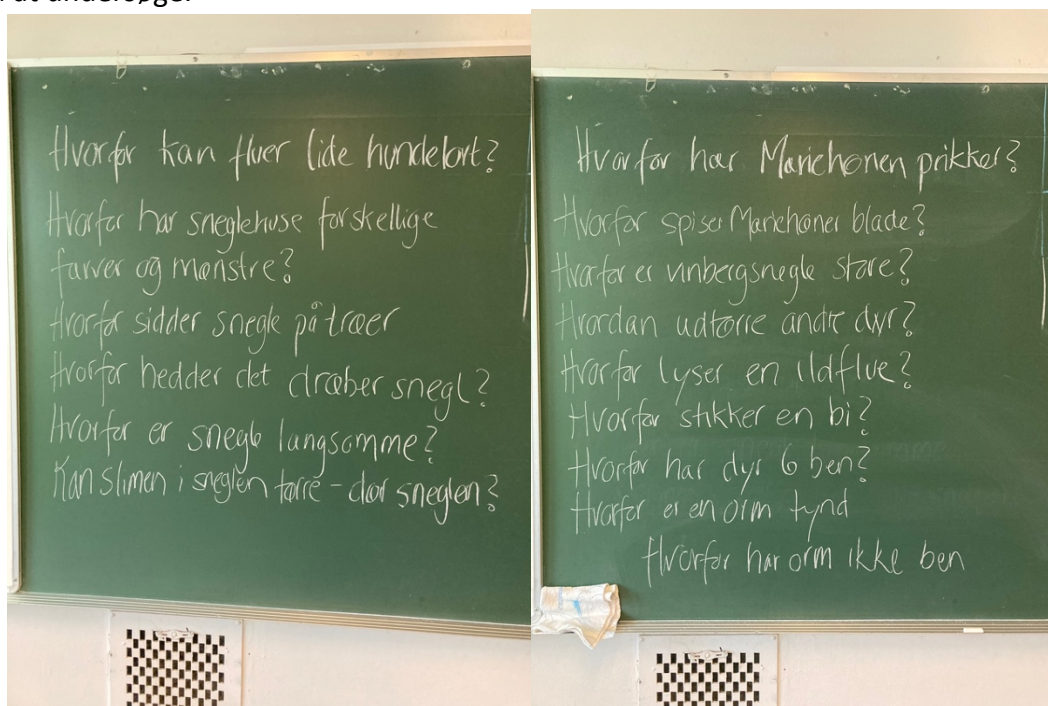 at undersøge.
Hvorfor kan fluer lide hundelort?
Hvorfor har sneglehuse forskellige
farver og mønstre?
Hvorfor sidder snegle på træer
Hvorfor hedder det dræber snegl?
Hvorfor er snegle langsomme?
Kan slimen i sneglen tørre - dør sneglen?
Hvorfor har Mariehønen prikker?
Hvorfor spiser Mariehøner blade?
Hvorfor er vinbergsnegle store?
Hvordan udtørre andre dyr?
Hvorfor lyser en ildflue?
Hvorfor stikker en bi?
Hvorfor har dyr 6 ben?
Hvorfor er en orm tynd
Hvorfor har orm ikke ben